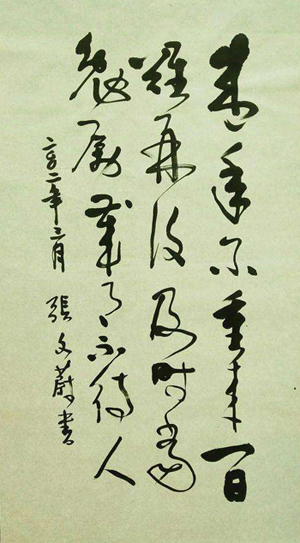 盛年不重來一日
難再晨及時當
勉勵歲月不待人
年三月 張文蔚書